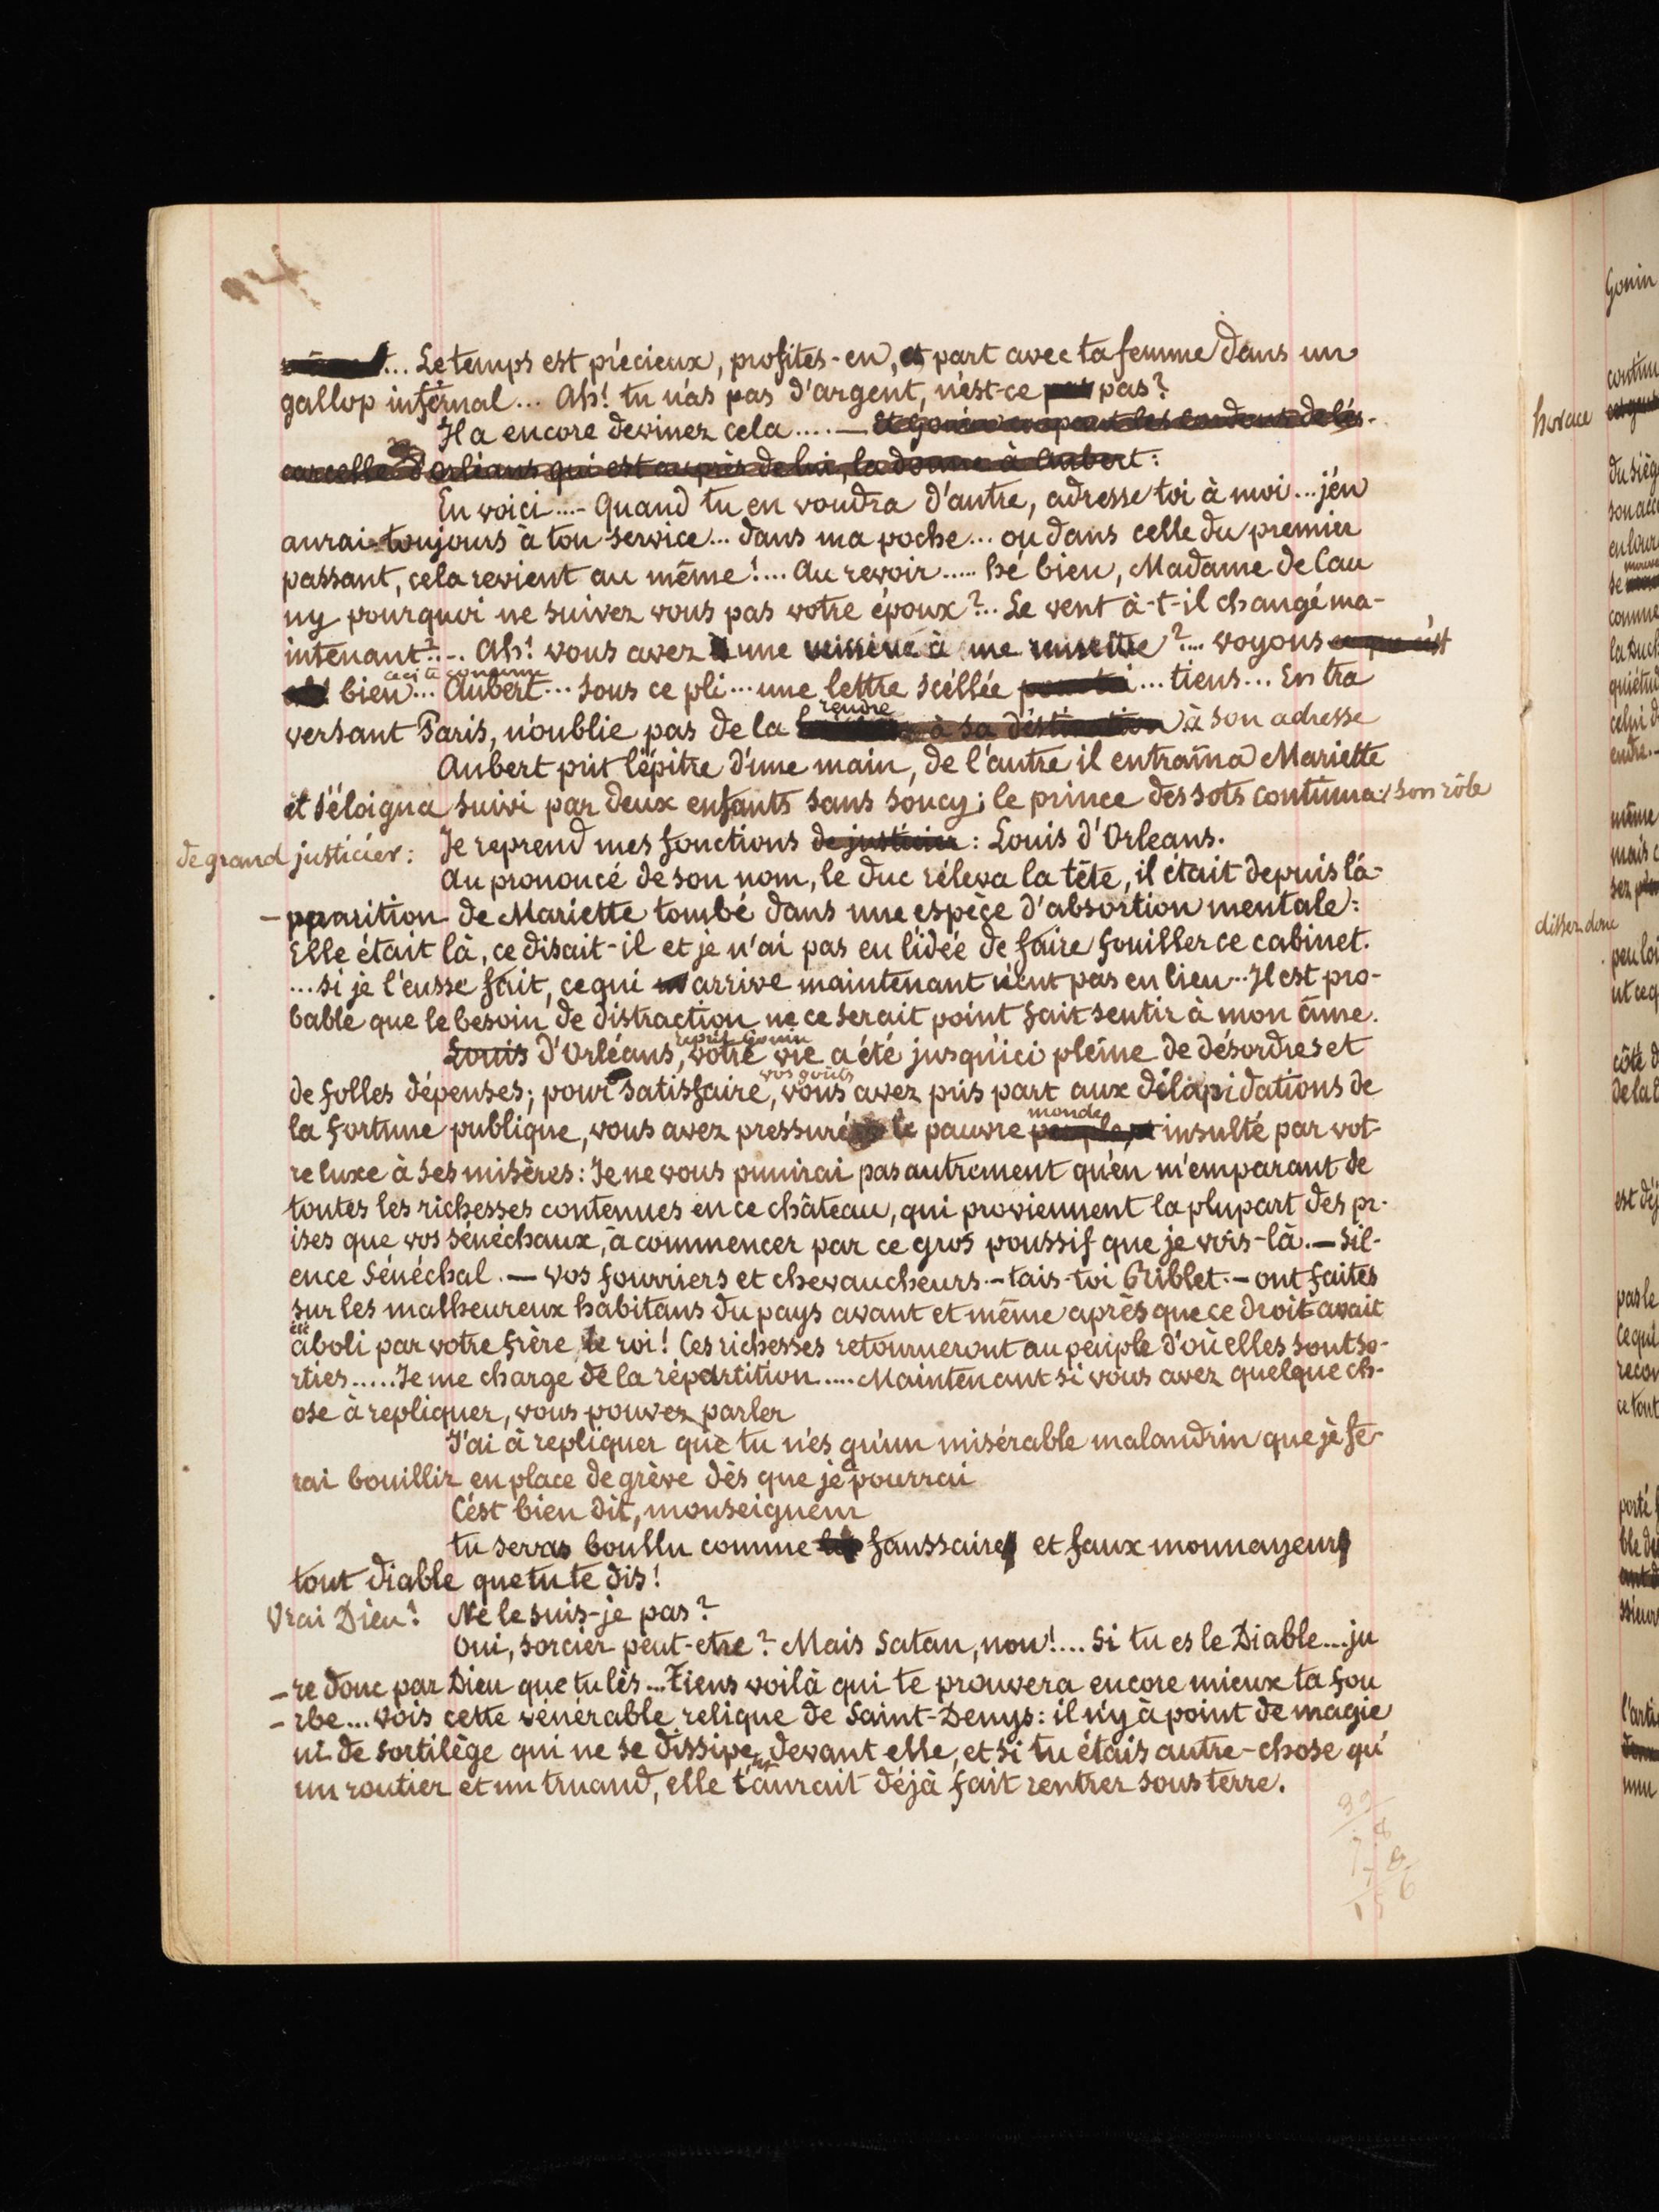 ... Le temps est précieux, profites-en, et part avec ta femme dans un
gallop infernal... Ah! tu n'as pas d'argent, n'est-ce pas pas?
Il a encore devinez cela....— et Gonin coupant les cordons de l'es-
carcelle d'orléans qui est auprès de lui, la donne à Aubert:
En voici...- Quand tu en voudra d'autre, adresse toi à moi... j'en
aurai toujours à ton service... dans ma poche... ou dans celle du premier
passant, cela revient au même!... Au revoir..... hé bien, Madame de Cau
ny pourquoi ne suivez vous pas votre époux?.. Le vent à-t-il changé ma-
intenant?... Ah! vous avez une missive à me remettre?... voyons ce que c'est
bien... Aubert... sous ce pli... une lettre scellée pour toi... tiens... En tra
versant Paris, n'oublie pas de la rendre à sa déstination à son adresse
Aubert prit l'épitre d'une main, de l'autre il entraîna Mariette
et s'éloigna suivi par deux enfants sans soucy; le prince des sots continua son rôle
de grand justicier: Je reprend mes fonctions de justicier: Louis d'Orleans.
Au prononcé de son nom, le duc réleva la tête, il était depuis l'a-
-pparition de Mariette tombé dans une espèce d'absortion mentale:
Elle était là, ce disait-il et je n'ai pas eu l'idée de faire fouiller ce cabinet.
... si je l'eusse fait, ce qui arrive maintenant n'eut pas eu lieu... Il est pro-
bable que le besoin de distraction ne ce serait point fait sentir à mon âme.
Louis d'Orléans, reprit Gonin votre vie a été jusqu'ici pleine de désordres et
de folles dépenses; pour satisfaire vos goûts, vous avez pris part aux dilapidations de
la fortune publique, vous avez pressuré le pauvre monde peuple, et insulté par vot-
re luxe à ses misères: Je ne vous punirai pas autrement qu'en m'emparant de
toutes les richesses contenues en ce château, qui proviennent la plupart des pr-
ises que vos sénéchaux, à commencer par ce gros poussif que je vois-là.— Sil-
ence Sénéchal.— vos fourriers et chevaucheurs.— tais-toi Griblet.— ont faites
sur les malheureux habitans du pays avant et même après que ce droit avait
été aboli par votre frère le roi! Ces richesses retourneront au peuple d'où elles sont so-
rties..... Je me charge de la répartition..... Maintenant si vous avez quelque ch-
ose à repliquer, vous pouvez parler
J'ai à repliquer que tu n'es qu'un misérable malandrin que je fe-
rai bouillir en place de grève dès que je pourrai
C'est bien dit, monseigneur
tu seras boullu comme faussaire et faux monnayeur
tout diable que tu te dis!
Vrai Dieu! Ne le suis-je pas?
Oui, sorcier peut-etre? Mais Satan, non!... Si tu es le Diable... ju
-re donc par Dieu que tu l'es... Tiens voilà qui te prouvera encore mieux ta fou
-rbe... vois cette vénérable relique de Saint-Denys: il n'y à point de magie
ni de sortilège qui ne se dissipe devant elle, et si tu étais autre-chose qu'
un routier et un truand, elle t'aurait déjà fait rentrer sous terre.